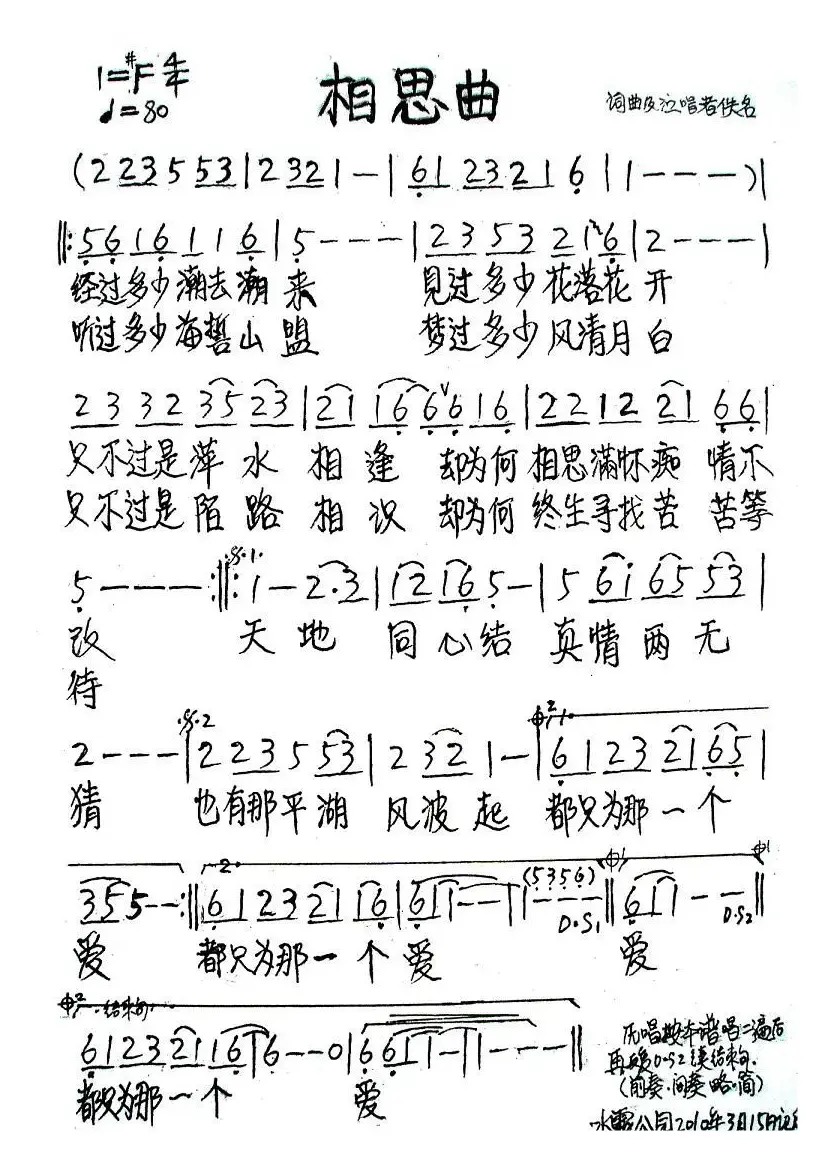 1=#F 4/4
♩=80
相思曲
词曲及泣唱者佚名
(2 2 3 5 5 3|2 3 2 1 —|6 1 2 3 2 1 6|1 — — —)|
‖:5 6 1 6 1 1 6|5 — — —|2 3 5 3 2 1 6|2 — — —|
经过多少潮去潮来 见过多少花落花开
听过多少海誓山盟 梦过多少风清月白
2 3 3 2 3 5 2 3|2 1 1 6 6 6 1 6|2 2 1 2 2 1 6 6|
只不过是萍水相逢 却为何相思满怀痴情不
只不过是陌路相识 却为何终生寻找苦苦等
5 — — — :‖: 1 — 2·3|1 2 1 6 5 —|5 6 1 6 5 5 3|
改 天地同心结 真情两无
待
2 — — —|2 2 3 5 5 3|2 3 2 1 —|6 1 2 3 2 1 6 5|
猜 也有那平湖风波起 都只为那一个
3 5 5 — — :‖ 6 1 2 3 2 1 1 6|6 1 1 — —|1 — — — (5 3 5 6) D.S1‖6 1 1 — — D.S2‖
爱 都只为那一个爱 爱
结束句
6 1 2 3 2 1 1 6|6 — — 0|6 6 1 1 — 1 — — —‖
都只为那一个 爱
原唱按本谱唱二遍后
再D.S2结束句.
(前奏.间奏略.简)
2010年3月15日记